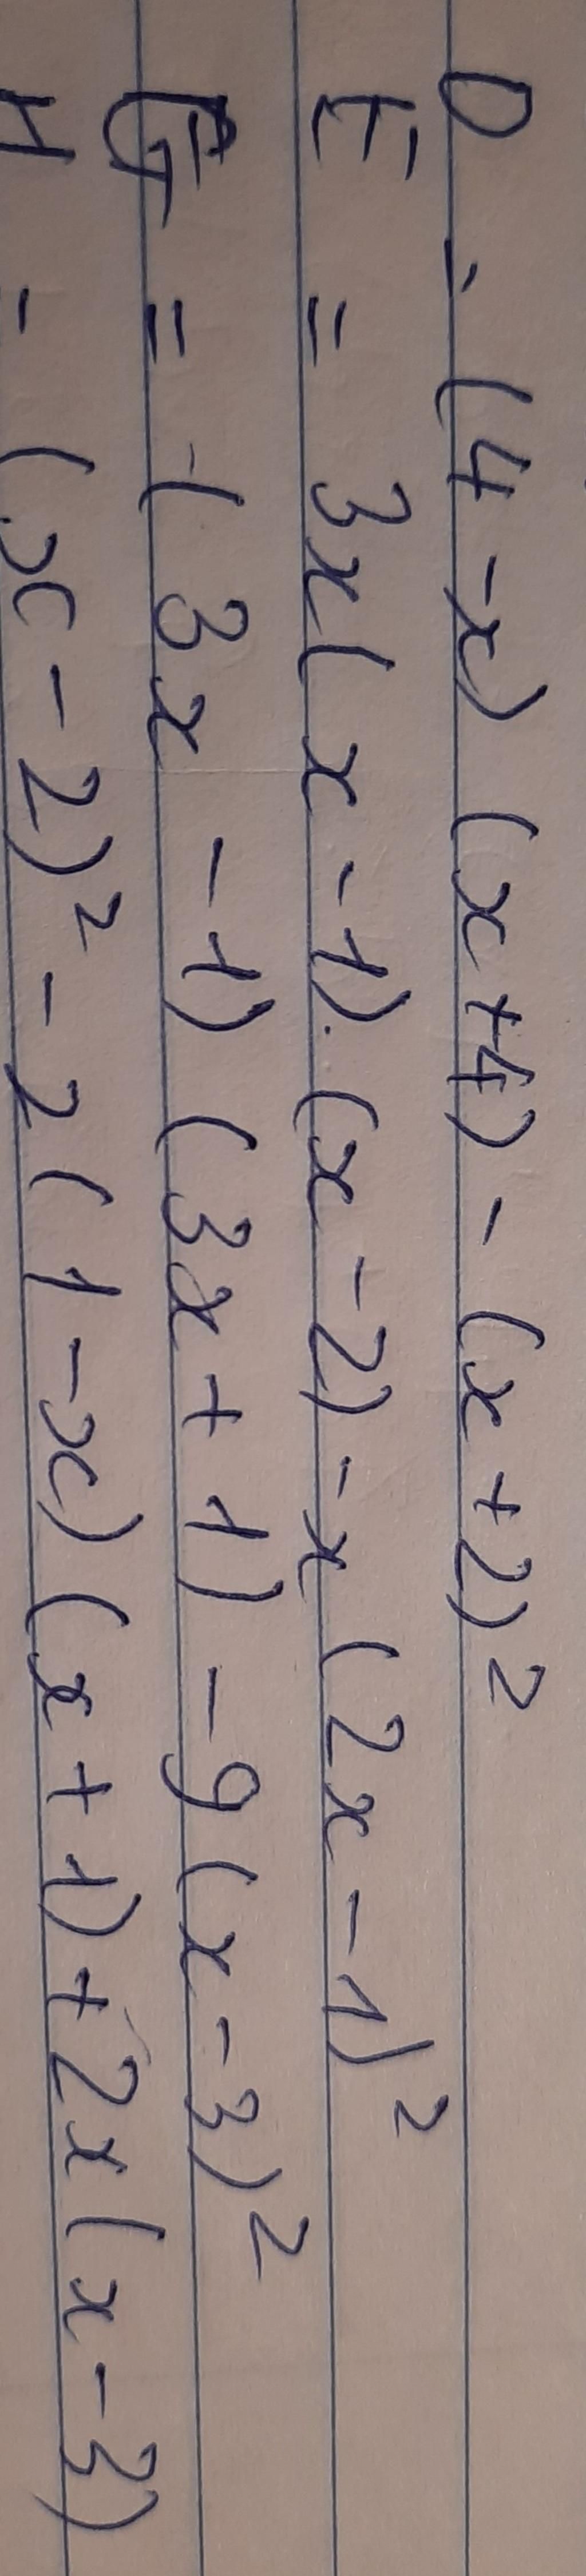 D = (4 - x) (x + 4) - (x + 2)²
E = 3x(x - 1).(x - 2) - x (2x - 1)²
G = (3x - 1) (3x + 1) - 9(x - 3)²
H = (x - 2)² - 2(1 - x) (x + 1) + 2x(x - 3)